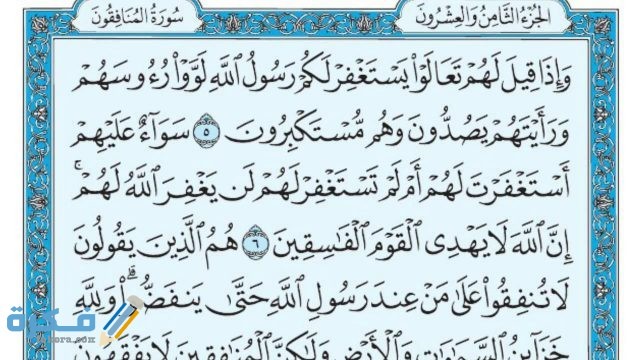 الجزء الثامن والعشرون
سورة المنافقون
وَإِذَا قِيلَ لَهُمْ تَعَالَوْا۟ يَسْتَغْفِرْ لَكُمْ رَسُولُ ٱللَّهِ لَوَّوْا۟ رُءُوسَهُمْ
وَرَأَيْتَهُمْ يَصُدُّونَ وَهُم مُّسْتَكْبِرُونَ ٥ سَوَآءٌ عَلَيْهِمْ
أَسْتَغْفَرْتَ لَهُمْ أَمْ لَمْ تَسْتَغْفِرْ لَهُمْ لَن يَغْفِرَ ٱللَّهُ لَهُمْ ۚ
إِنَّ ٱللَّهَ لَا يَهْدِى ٱلْقَوْمَ ٱلْفَٰسِقِينَ ٦ هُمُ ٱلَّذِينَ يَقُولُونَ
لَا تُنفِقُوا۟ عَلَىٰ مَنْ عِندَ رَسُولِ ٱللَّهِ حَتَّىٰ يَنفَضُّوا۟ ۗ وَلِلَّهِ
خَزَآئِنُ ٱلسَّمَٰوَٰتِ وَٱلْأَرْضِ وَلَٰكِنَّ ٱلْمُنَٰفِقِينَ لَا يَفْقَهُونَ
فكرة